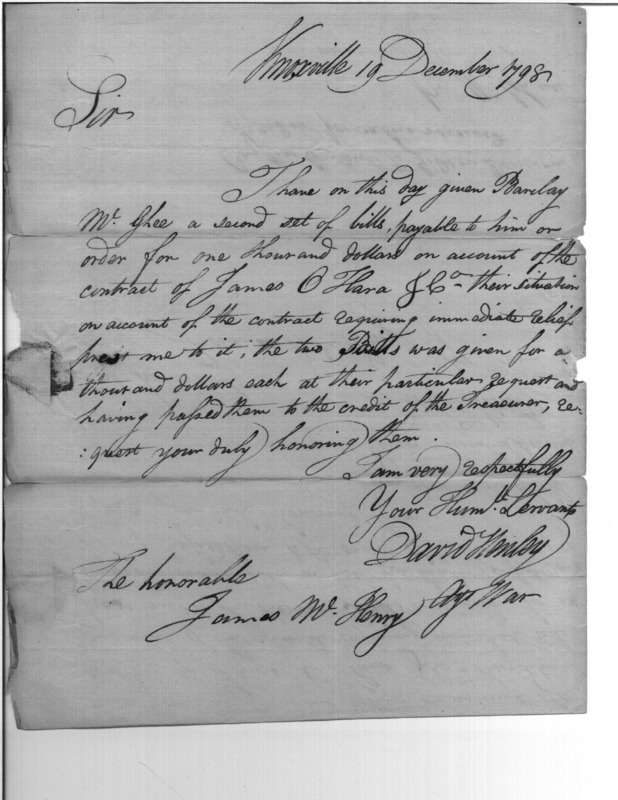 Knoxville 19 December 1798
Sir
I have on this day given Barclay
Mc Ghee a second set of bills, payable to him or
order for one thousand dollars on account of the
contract of James O Hara & Co their situation
on account of the contract requiring immediate relief
prest me to it; the two Bills was given for a
thousand dollars each at their particular request and
having passed them to the credit of the Treasurer, re-
:quest your duly honoring them.
I am very respectfully
Your Humbl. Servant
David Henley
Agt War
The honorable
James Mc Henry